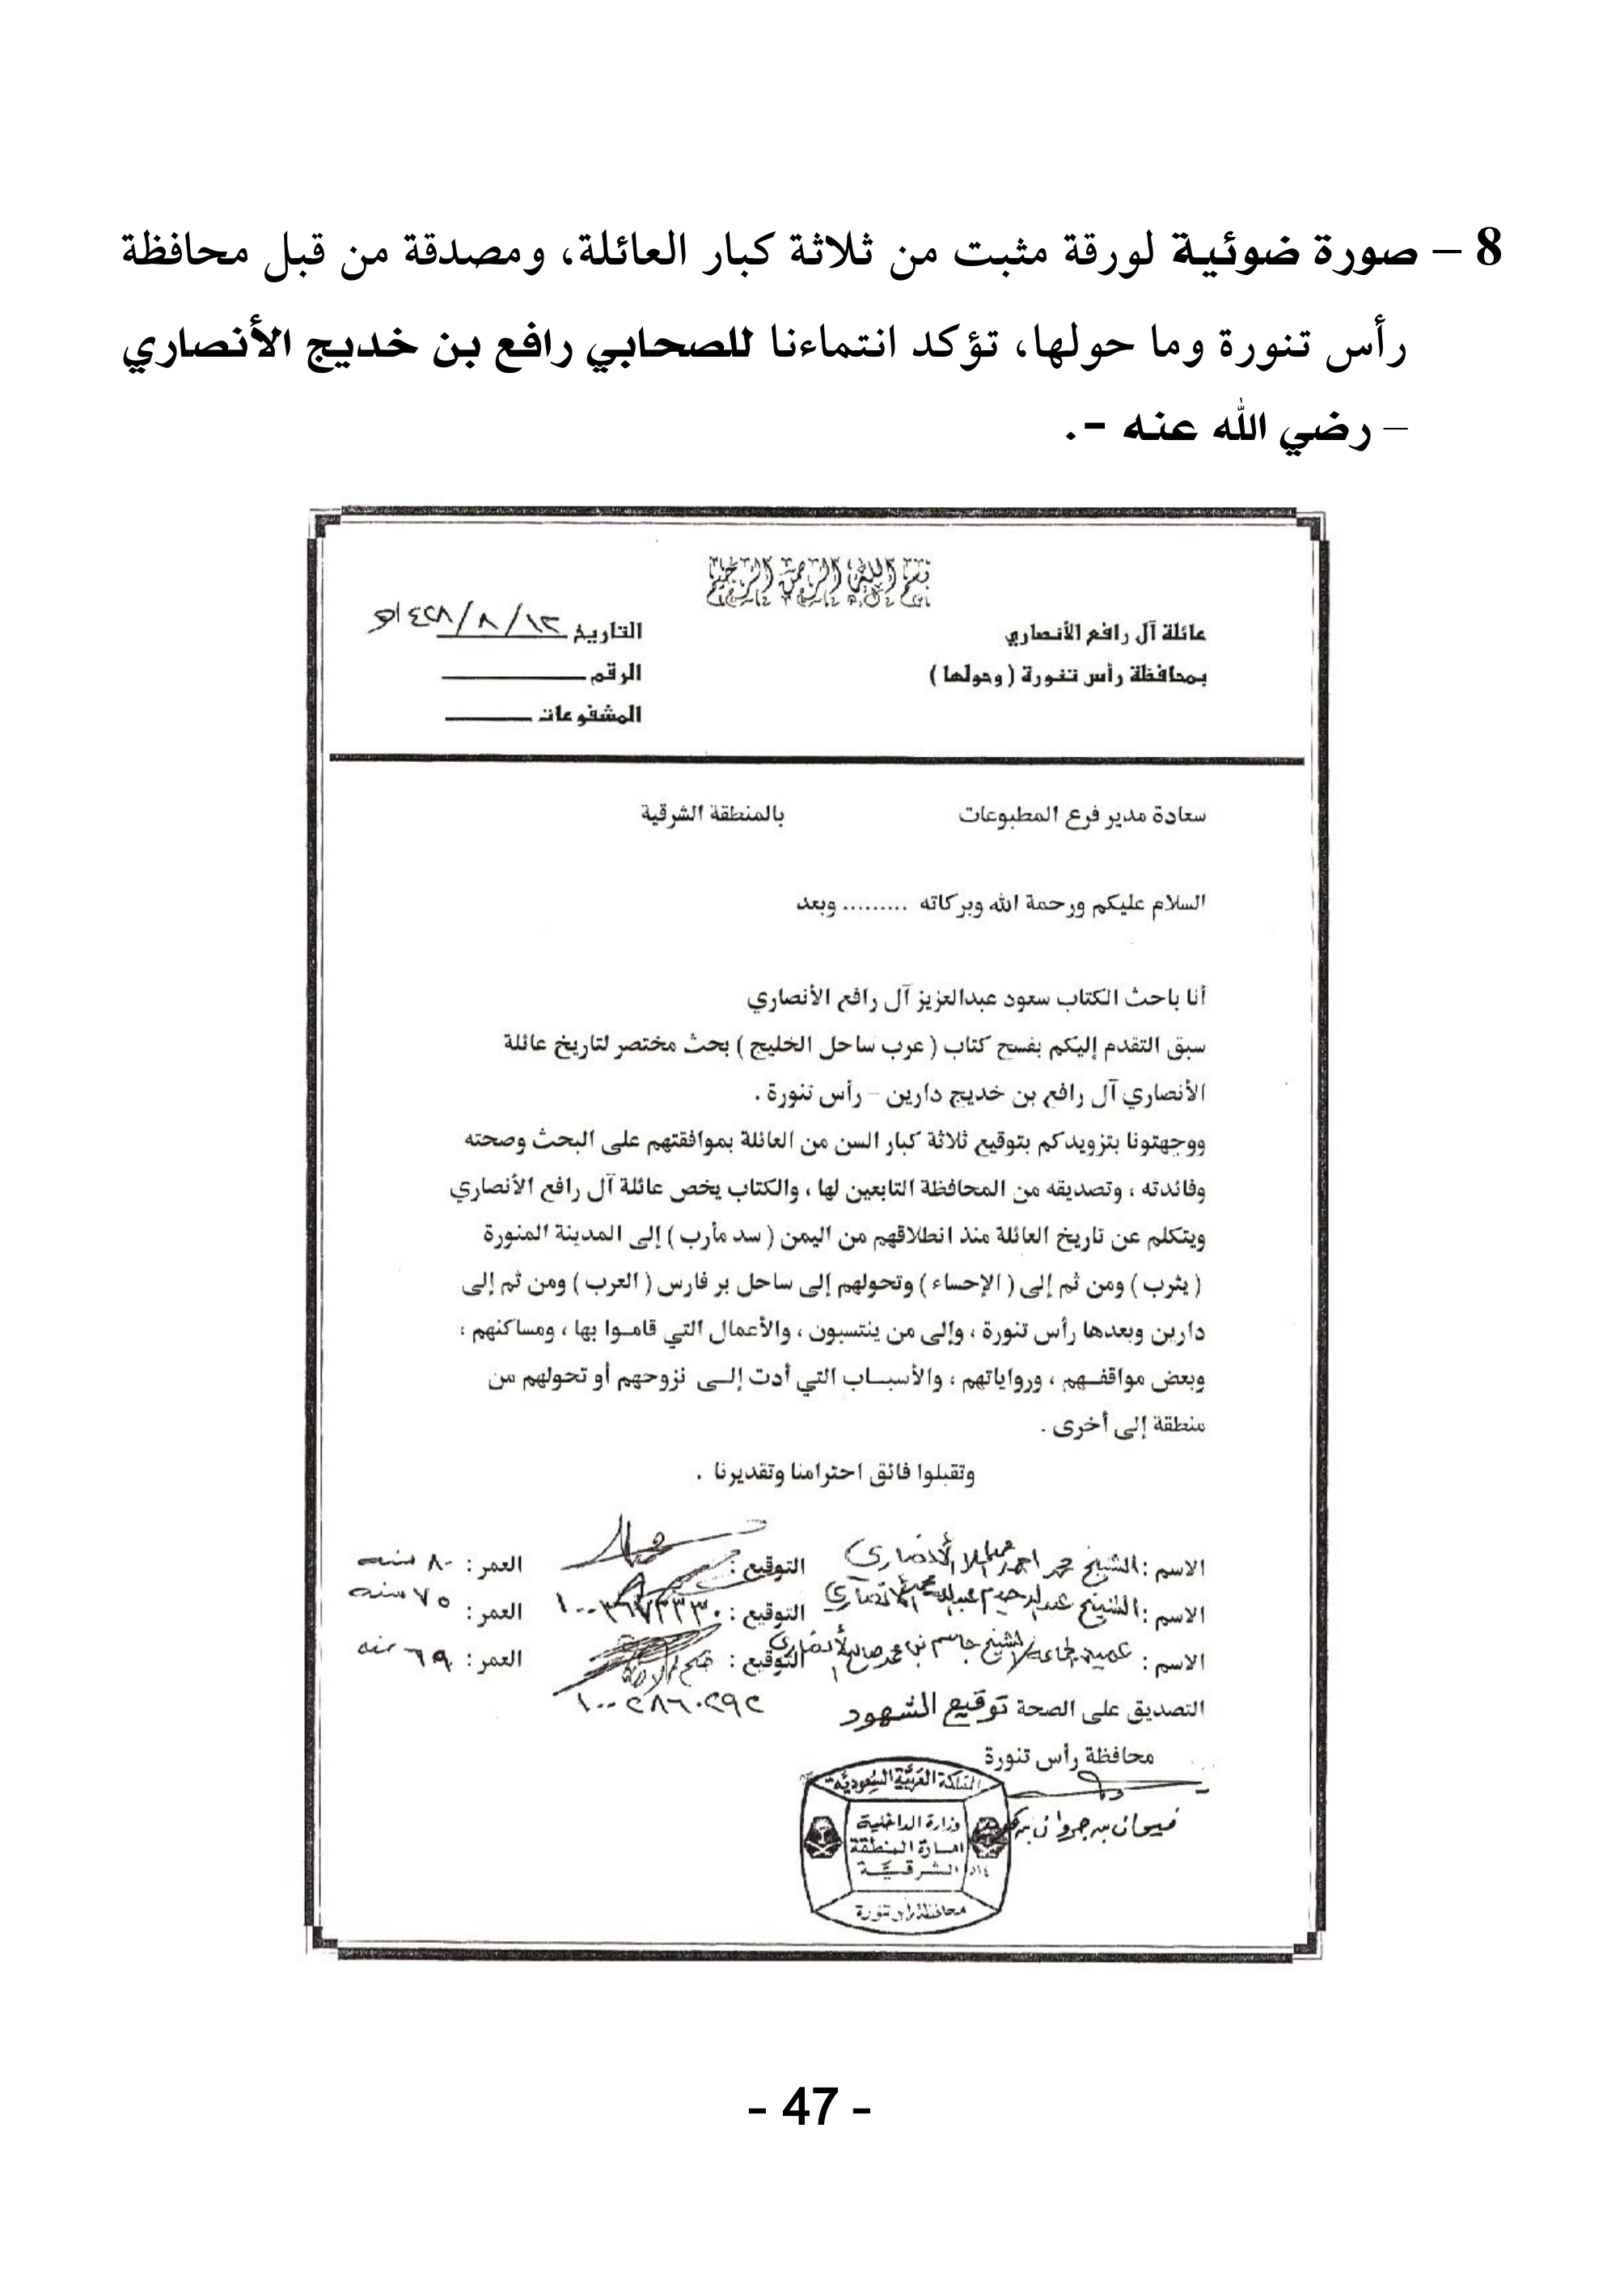 8 – صورة ضوئية لورقة مثبت من ثلاثة كبار العائلة، ومصدقة من قبل محافظة
رأس تنورة وما حولها، تؤكد انتماءنا للصحابي رافع بن خديج الأنصاري
– رضي الله عنه -.
بسم الله الرحمن الرحيم
عائلة آل رافع الأنصاري
بمحافظة رأس تنورة ( وحولها )
التاريخ ١٢/ ٨ /١٤٢٨هـ
الرقم
المشفوعات
سعادة مدير فرع المطبوعات بالمنطقة الشرقية
السلام عليكم ورحمة الله وبركاته ......... وبعد
أنا باحث الكتاب سعود عبدالعزيز آل رافع الأنصاري
سبق التقدم إليكم بفسح كتاب ( عرب ساحل الخليج ) بحث مختصر لتاريخ عائلة
الأنصاري آل رافع بن خديج دارين – رأس تنورة .
ووجهتونا بتزويدكم بتوقيع ثلاثة كبار السن من العائلة بموافقتهم على البحث وصحته
وفائدته ، وتصديقه من المحافظة التابعين لها ، والكتاب يخص عائلة آل رافع الأنصاري
ويتكلم عن تاريخ العائلة منذ انطلاقهم من اليمن ( سد مأرب ) إلى المدينة المنورة
( يثرب ) ومن ثم إلى ( الإحساء ) وتحولهم إلى ساحل بر فارس ( العرب ) ومن ثم إلى
دارين وبعدها رأس تنورة ، وإلى من ينتسبون ، والأعمال التي قاموا بها ، ومساكنهم ،
وبعض مواقفهم ، ورواياتهم ، والأسباب التي أدت إلى نزوحهم أو تحولهم من
منطقة إلى أخرى .
وتقبلوا فائق احترامنا وتقديرنا .
الاسم : الشيخ محمد احمد الأنصاري التوقيع : العمر : ٨٠ سنه
الاسم : الشيخ عبدالرحيم عبدالله الأنصاري التوقيع : العمر : ٧٥ سنه
الاسم : عميد الجماعة الشيخ جاسم بن محمد صالح الأنصاري التوقيع : العمر : ٦٩ سنه
١٠٠٢٨٦٠٢٩٢
التصديق على الصحة توقيع الشهود
محافظة رأس تنورة
المملكة العربية السعودية
وزارة الداخلية
امارة المنطقة
الشرقية
محافظة رأس تنورة
- 47 -